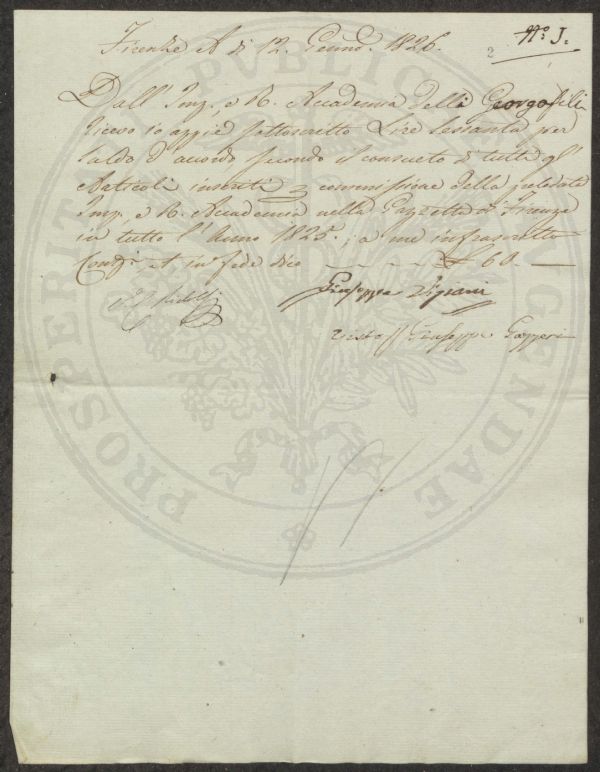 Nº I.
2
Firenze A dì 12. Gennº. 1826.
Dall' Imp. e R. Accademia delli Georgofili
ricevo io appiè sottoscritto Lire Sessanta per
saldo d'acordo secondo il consueto di tutti gl'
Articoli inseriti commissione della
Imp. e R. Accademia nella Gazzetta di Firenze
in tutto l'Anno 1825. ; a me infrascritto
et in fede dico — — — — £ 60. —
Giuseppe
Visto Giuseppe Gazzeri
PROSPERITATI PUBLICAE AUGENDAE